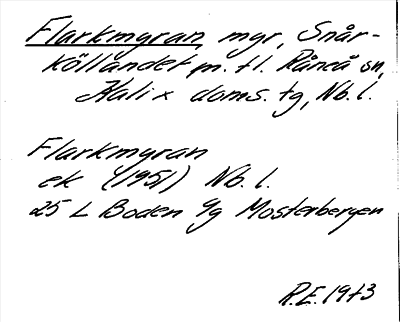 Flarkmyran, myr, Snår-
köllandet m. fl. Råneå sn,
Kalix doms. tg, Nb. l.
Flarkmyran
ek (1951) Nb. l.
25 L Boden 9g Mosterbergen
R.E. 1973